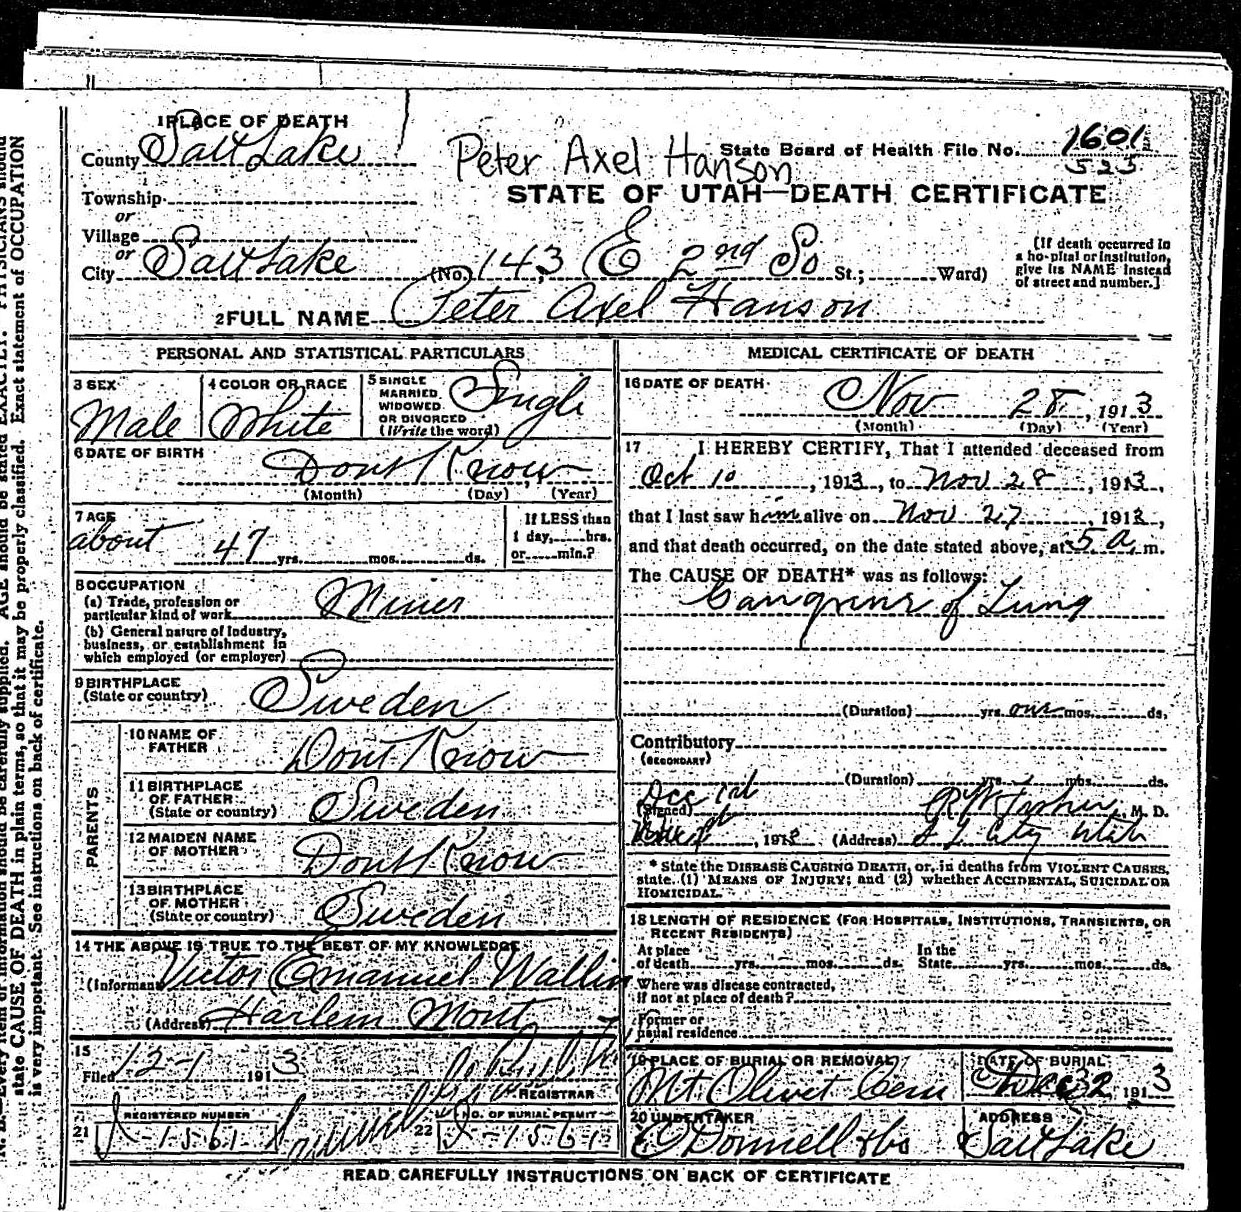 1 PLACE OF DEATH
County Salt Lake
Peter Axel Hanson
State Board of Health File No. 1601
525
STATE OF UTAH—DEATH CERTIFICATE
Township
or
Village
or
City Salt Lake (No. 143 E 2nd So St.; Ward)
[If death occurred in
a hospital or institution,
give its NAME instead
of street and number.]
2 FULL NAME Peter Axel Hanson
PERSONAL AND STATISTICAL PARTICULARS
3 SEX
Male
4 COLOR OR RACE
White
5 SINGLE
MARRIED
WIDOWED
OR DIVORCED
(Write the word)
Single
6 DATE OF BIRTH
Dont Know
(Month) (Day) (Year)
7 AGE
about 47 yrs. mos. ds.
If LESS than
1 day, hrs.
or min.?
8 OCCUPATION
(a) Trade, profession or
particular kind of work Miner
(b) General nature of industry,
business, or establishment in
which employed (or employer)
9 BIRTHPLACE
(State or country) Sweden
PARENTS
10 NAME OF
FATHER Dont Know
11 BIRTHPLACE
OF FATHER
(State or country) Sweden
12 MAIDEN NAME
OF MOTHER Dont Know
13 BIRTHPLACE
OF MOTHER
(State or country) Sweden
14 THE ABOVE IS TRUE TO THE BEST OF MY KNOWLEDGE
(Informant Victor Emanuel Wallin
(Address) Harlem Mont
15
Filed 12-1 1913
REGISTRAR
21 REGISTERED NUMBER
1561
22 NO. OF BURIAL PERMIT
1561
MEDICAL CERTIFICATE OF DEATH
16 DATE OF DEATH
Nov 28, 1913
(Month) (Day) (Year)
17 I HEREBY CERTIFY, That I attended deceased from
Oct 10, 1913, to Nov 28, 1913,
that I last saw him alive on Nov 27, 1913,
and that death occurred, on the date stated above, at 5 a. m.
The CAUSE OF DEATH* was as follows:
Gangrene of Lung
(Duration) yrs. one mos. ds.
Contributory
(SECONDARY)
(Duration) yrs. mos. ds.
(Signed) M. D.
, 191 (Address) S L City Utah
* State the DISEASE CAUSING DEATH, or, in deaths from VIOLENT CAUSES,
state (1) MEANS OF INJURY; and (2) whether ACCIDENTAL, SUICIDAL OR
HOMICIDAL.
18 LENGTH OF RESIDENCE (FOR HOSPITALS, INSTITUTIONS, TRANSIENTS, OR
RECENT RESIDENTS)
At place
of death yrs. mos. ds.
In the
State yrs. mos. ds.
Where was disease contracted,
if not at place of death?
Former or
usual residence
19 PLACE OF BURIAL OR REMOVAL
Mt Olivet Cem
DATE OF BURIAL
Dec 2 1913
20 UNDERTAKER
O'Donnell & Co
ADDRESS
Salt Lake
READ CAREFULLY INSTRUCTIONS ON BACK OF CERTIFICATE
state CAUSE OF DEATH in plain terms, so that it may be properly classified. Exact statement of OCCUPATION
is very important. See instructions on back of certificate.